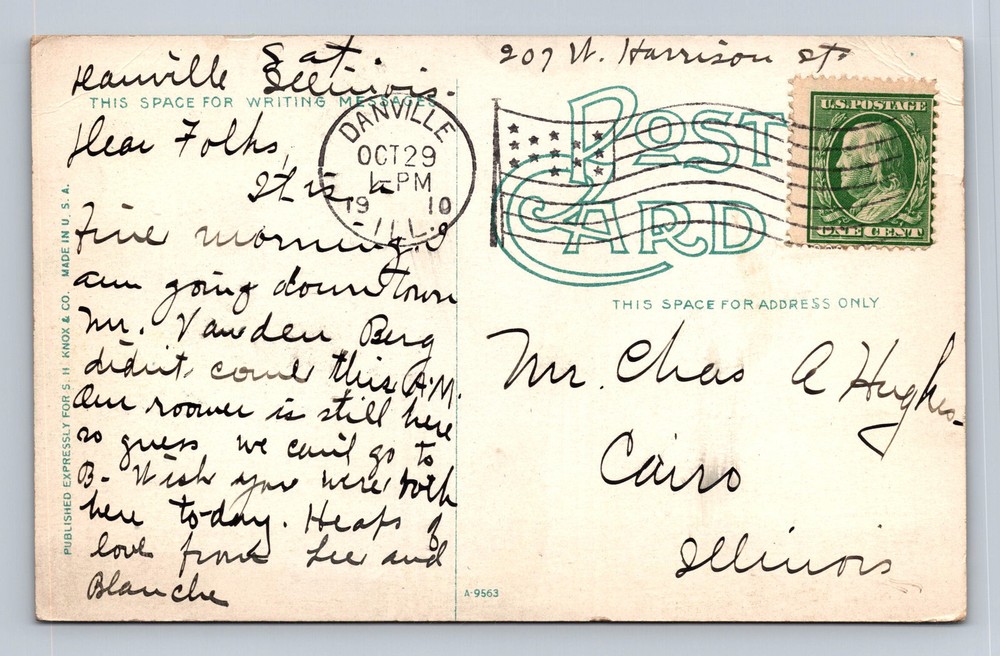 Sat.
Danville Illinois.
THIS SPACE FOR WRITING MESSAGES
Dear Folks,
It is a
fine morning. I
am going down town
Mr. Vanden Berg
didn't come this A.M.
Our roomer is still here
so guess we can't go to
B- Wish you were both
here to-day. Heaps of
love from Lee and
Blanche
PUBLISHED EXPRESSLY FOR S. H. KNOX & CO. MADE IN U. S. A.
DANVILLE
OCT 29
1-PM
19 10
ILL.
207 W. Harrison St.
POST
CARD
U.S. POSTAGE
ONE CENT
THIS SPACE FOR ADDRESS ONLY
Mr. Chas A Hughes-
Cairo
Illinois
A-9563